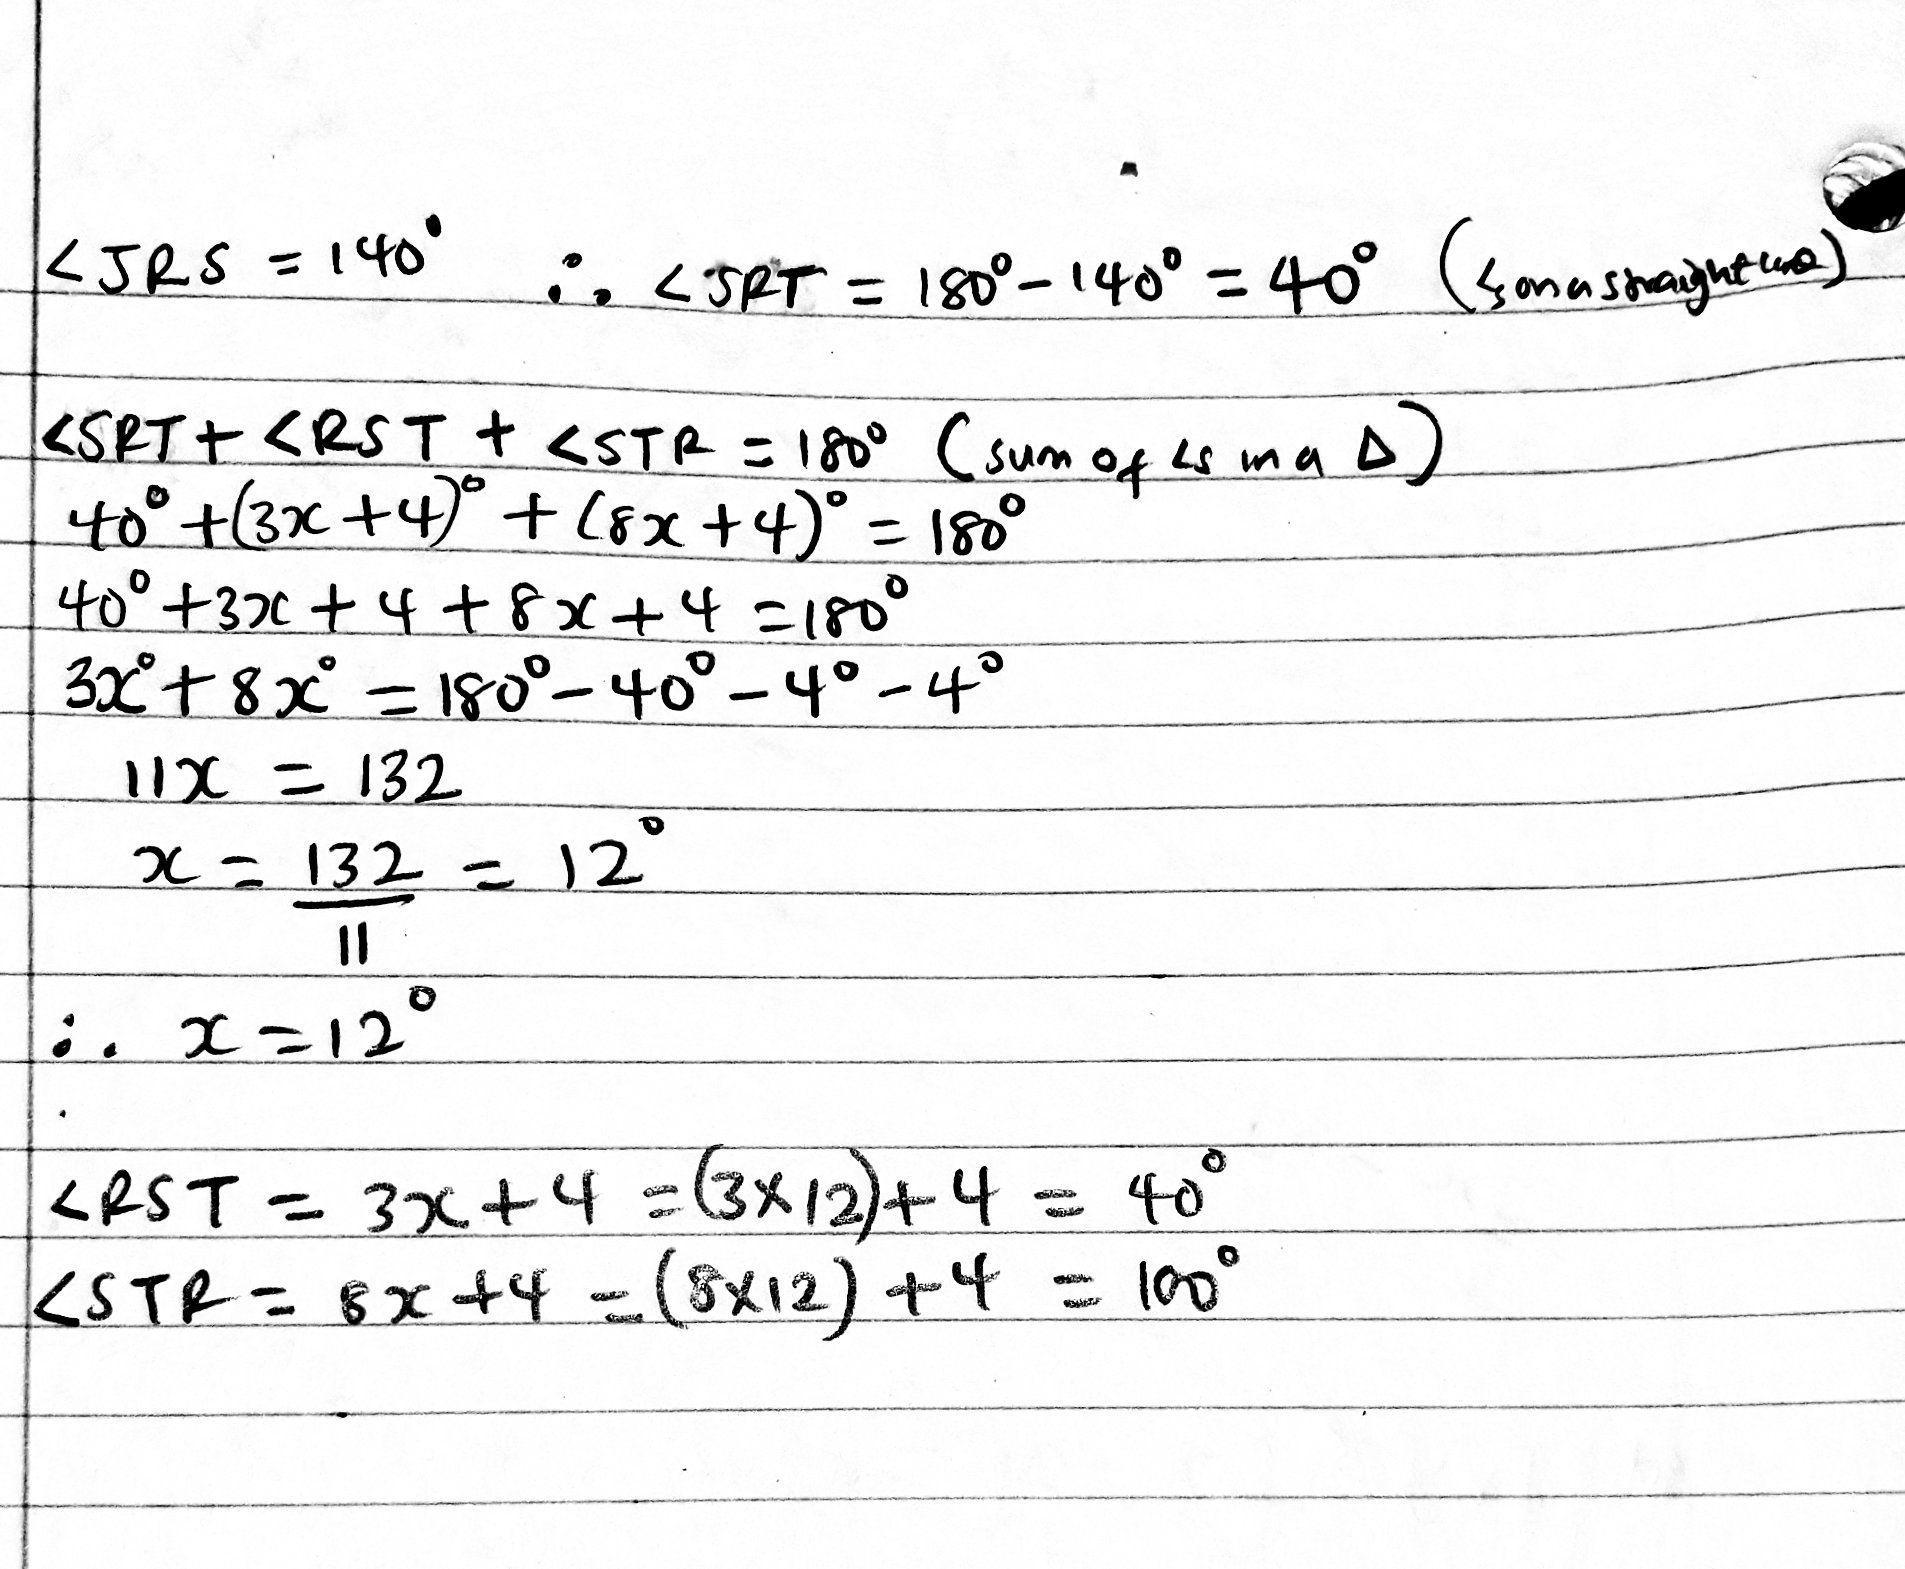 <JRS = 140° ∴ <SRT = 180° - 140° = 40° (<s on a straight line)
<SRT + <RST + <STR = 180° (sum of <s in a Δ)
40° + (3x + 4)° + (8x + 4)° = 180°
40° + 3x + 4 + 8x + 4 = 180°
3x° + 8x° = 180° - 40° - 4° - 4°
11x = 132
x = 132/11 = 12°
∴ x = 12°
<RST = 3x + 4 = (3x12) + 4 = 40°
<STR = 8x + 4 = (8x12) + 4 = 100°